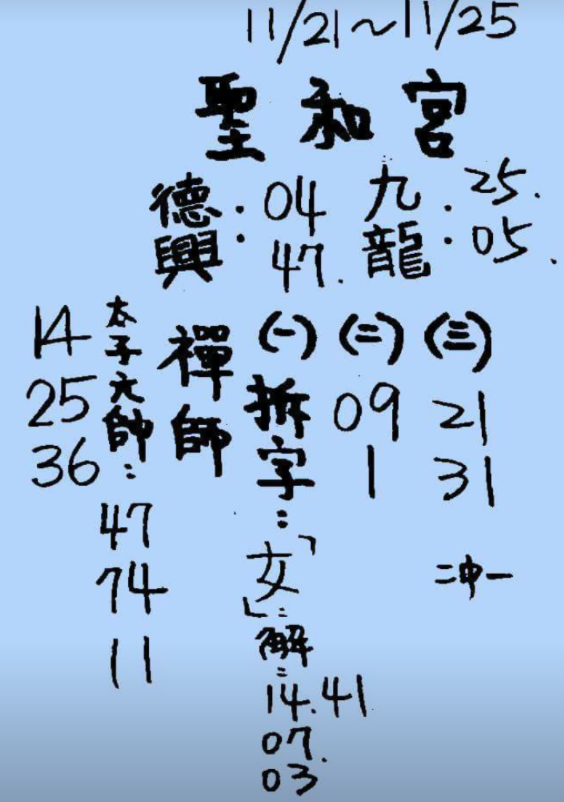 11/21～11/25
聖和宮
德興：04 47.
九龍：25. 05.
禪師
(一)拆字：「女」：解：14.41 07. 03
(二) 09 1
(三) 21 31
二沖一
太子元帥：47 74 11
14
25
36